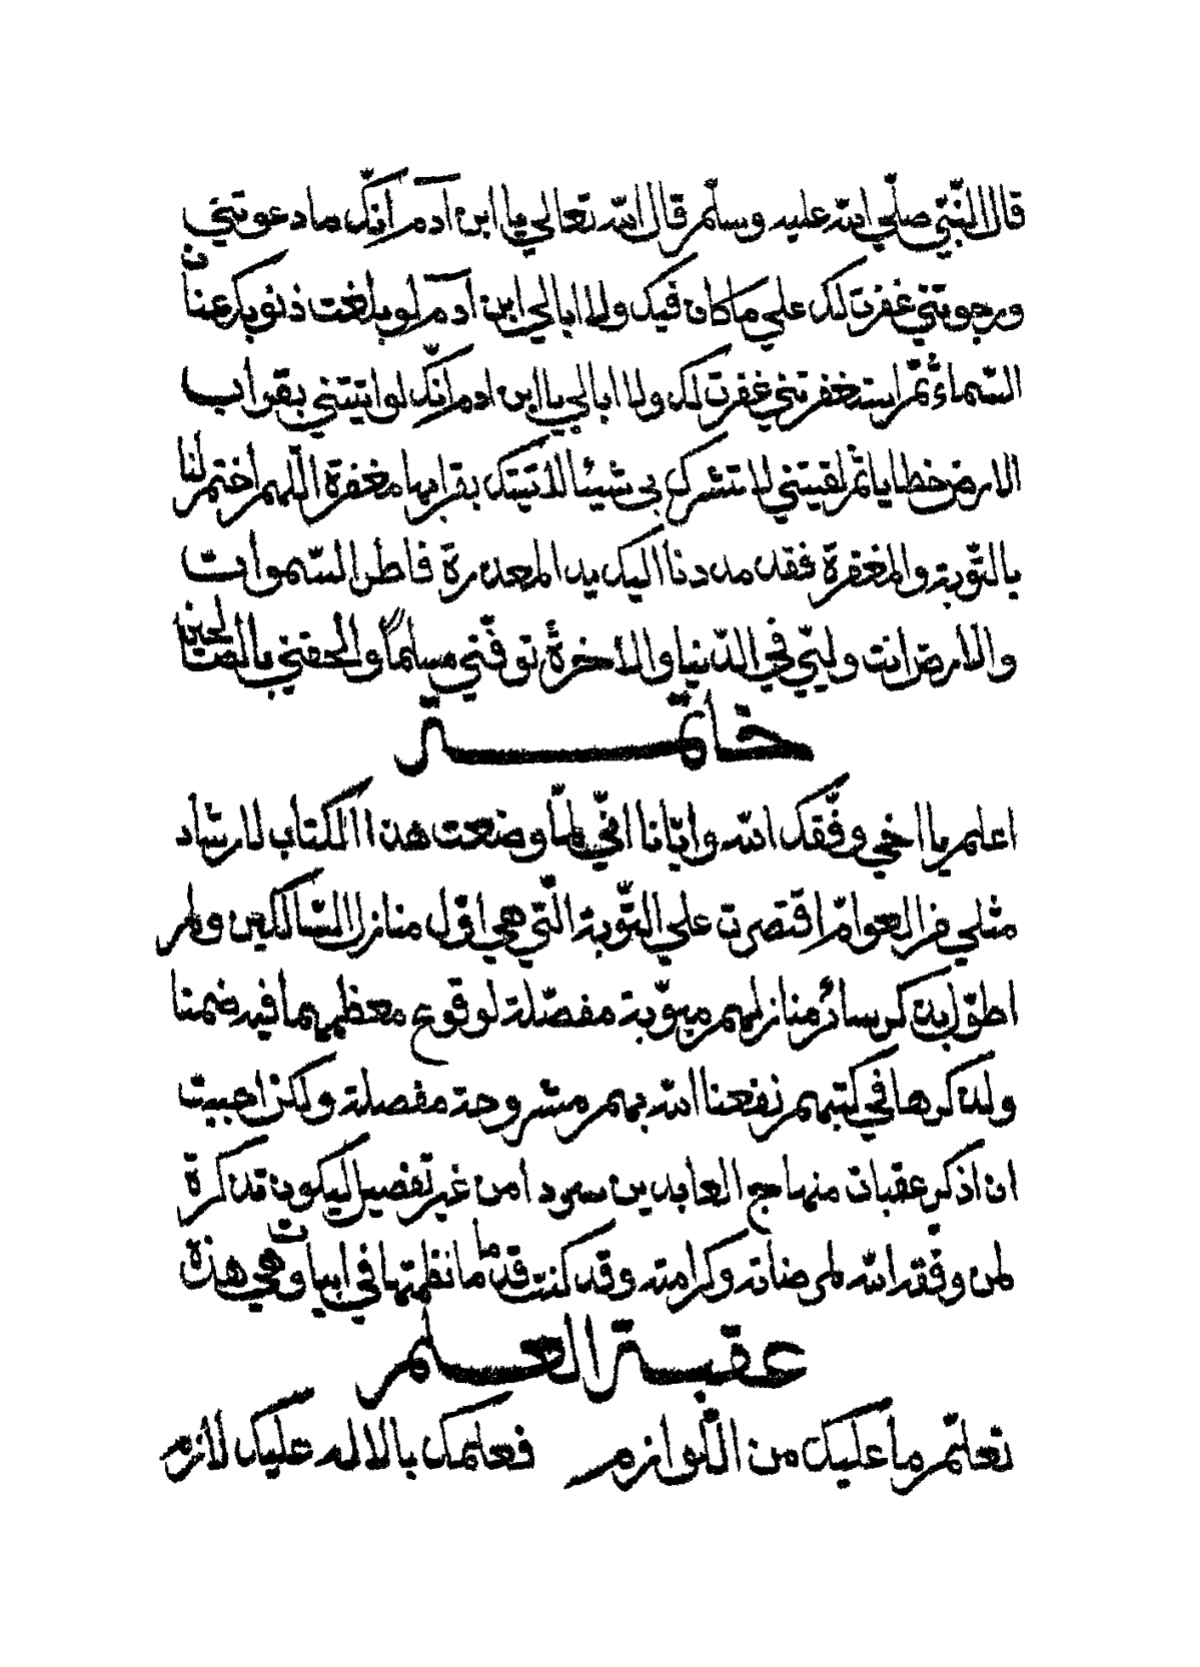 قال النّبيّ صلّي الله عليه وسلّم قال الله تعالي يا ابن آدم انّك ما دعوتني
ورجوتني غفرت لك علي ما كان فيك ولا ابالي ابن آدم لو بلغت ذنوبك عنان
السّماء ثمّ استغفرتني غفرت لك ولا ابالي يا ابن ادم انّك لو اتيتني بقراب
الارض خطايا ثمّ لقيتني لا تشرك بي شيئا لأتيتك بقرابها مغفرة اللّهم اختم لنا
بالتّوبة والمغفرة فقد مددنا اليك يد المعذرة فاطر السّموات
والارض انت وليّي في الدّنيا والأخرة توفّني مسلمًا والحقني بالصّالحين
خاتمة
اعلم يا اخي وفّقك الله وايّانا انّي لمّا وضعت هذا الكتاب لارشاد
مثلي من العوامّ اقتصرت علي التّوبة الّتي هي اوّل منازل السّالكين ولم
اطوّل بذكر سائر منازلهم مبوّبة مفصّلة لوقوع معظمها فيه ضمنا
ولذكرها في كتبهم نفعنا الله بهم مشروحة مفصلة ولكن احببت
ان اذكر عقبات منهاج العابدين سردا من غير تفصيل ليكون تذكرة
لمن وفّقه الله لمرضاته وكرامته وقد كنت قدما ما نظمتها في ابيات وهي هذه
عقبة العلم
تعلّم ما عليك من اللّوازم فعلمك بالاله عليك لأزم